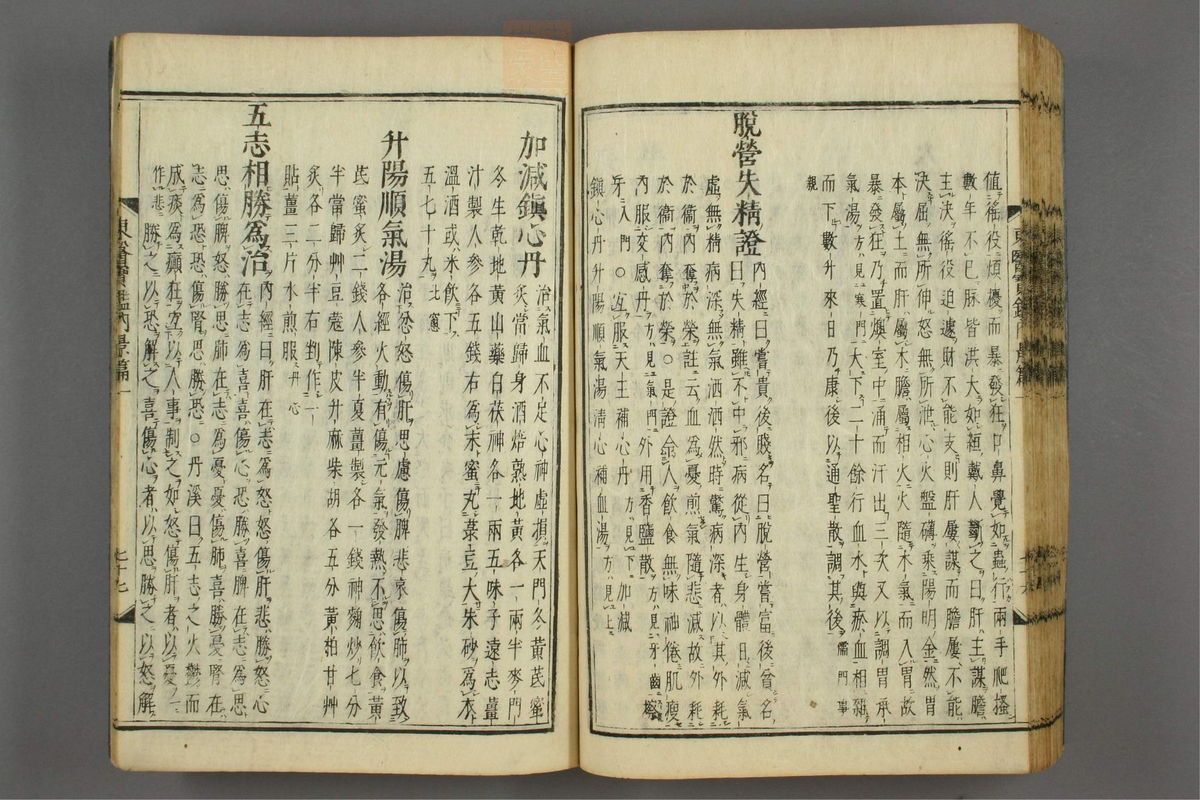 值徭役煩擾而暴發狂口鼻覺如蟲行兩手爬搔
數年不已脉皆洪大如絙戴人斷之曰肝主謀膽
主決徭役迫遽財不能支則肝屢謀而膽屢不能
決屈無所伸怒無所泄心火盤礴乘陽明金然胃
本屬土而肝屬木膽屬相火火隨木氣而入胃故
暴發狂乃置燠室中涌而汗出三次又以調胃承
氣湯方見寒門大下二十餘行血水與瘀血相雜
而下數升來日乃康後以通聖散調其後儒門事
親
脫營失精證內經曰嘗貴後賤名曰脫營嘗富後貧名
曰失精雖不中邪病從內生身體日減氣
虛無精病深無氣洒洒然時驚病深者以其外耗
於衛內奪於榮註云血為憂煎氣隨悲減故外耗
於衛內奪於榮○是證令人飲食無味神倦肌瘦
內服交感丹方見氣門外用香鹽散方見牙齒擦
牙入門○宜服天王補心丹方見下加減
鎭心丹升陽順氣湯淸心補血湯方見上
加減鎭心丹治氣血不足心神虛損天門冬黃芪蜜
炙當歸身酒焙熟地黃各一兩半麥門
冬生乾地黃山藥白茯神各一兩五味子遠志薑
汁製人參各五錢右為末蜜丸菉豆大朱砂為衣
溫酒或米飮下
五七十丸北窓
升陽順氣湯治忿怒傷肝思慮傷脾悲哀傷肺以致
各經火動有傷元氣發熱不思飲食黃
芪蜜炙二錢人參半夏薑製各一錢神麴炒七分
半當歸艸豆蔻陳皮升麻柴胡各五分黃柏甘艸
炙各二分半右剉作一
貼薑三片水煎服丹心
五志相勝為治內經曰肝在志為怒怒傷肝悲勝怒心
在志為喜喜傷心恐勝喜脾在志為思
思傷脾怒勝思肺在志為憂憂傷肺喜勝憂腎在
志為恐恐傷腎思勝恐○丹溪曰五志之火鬱而
成痰為癲狂宜以人事制之如怒傷肝者以憂
勝之以恐解之喜傷心者以思勝之以怒解
一作悲
東醫寶鑑內景篇一
七十七